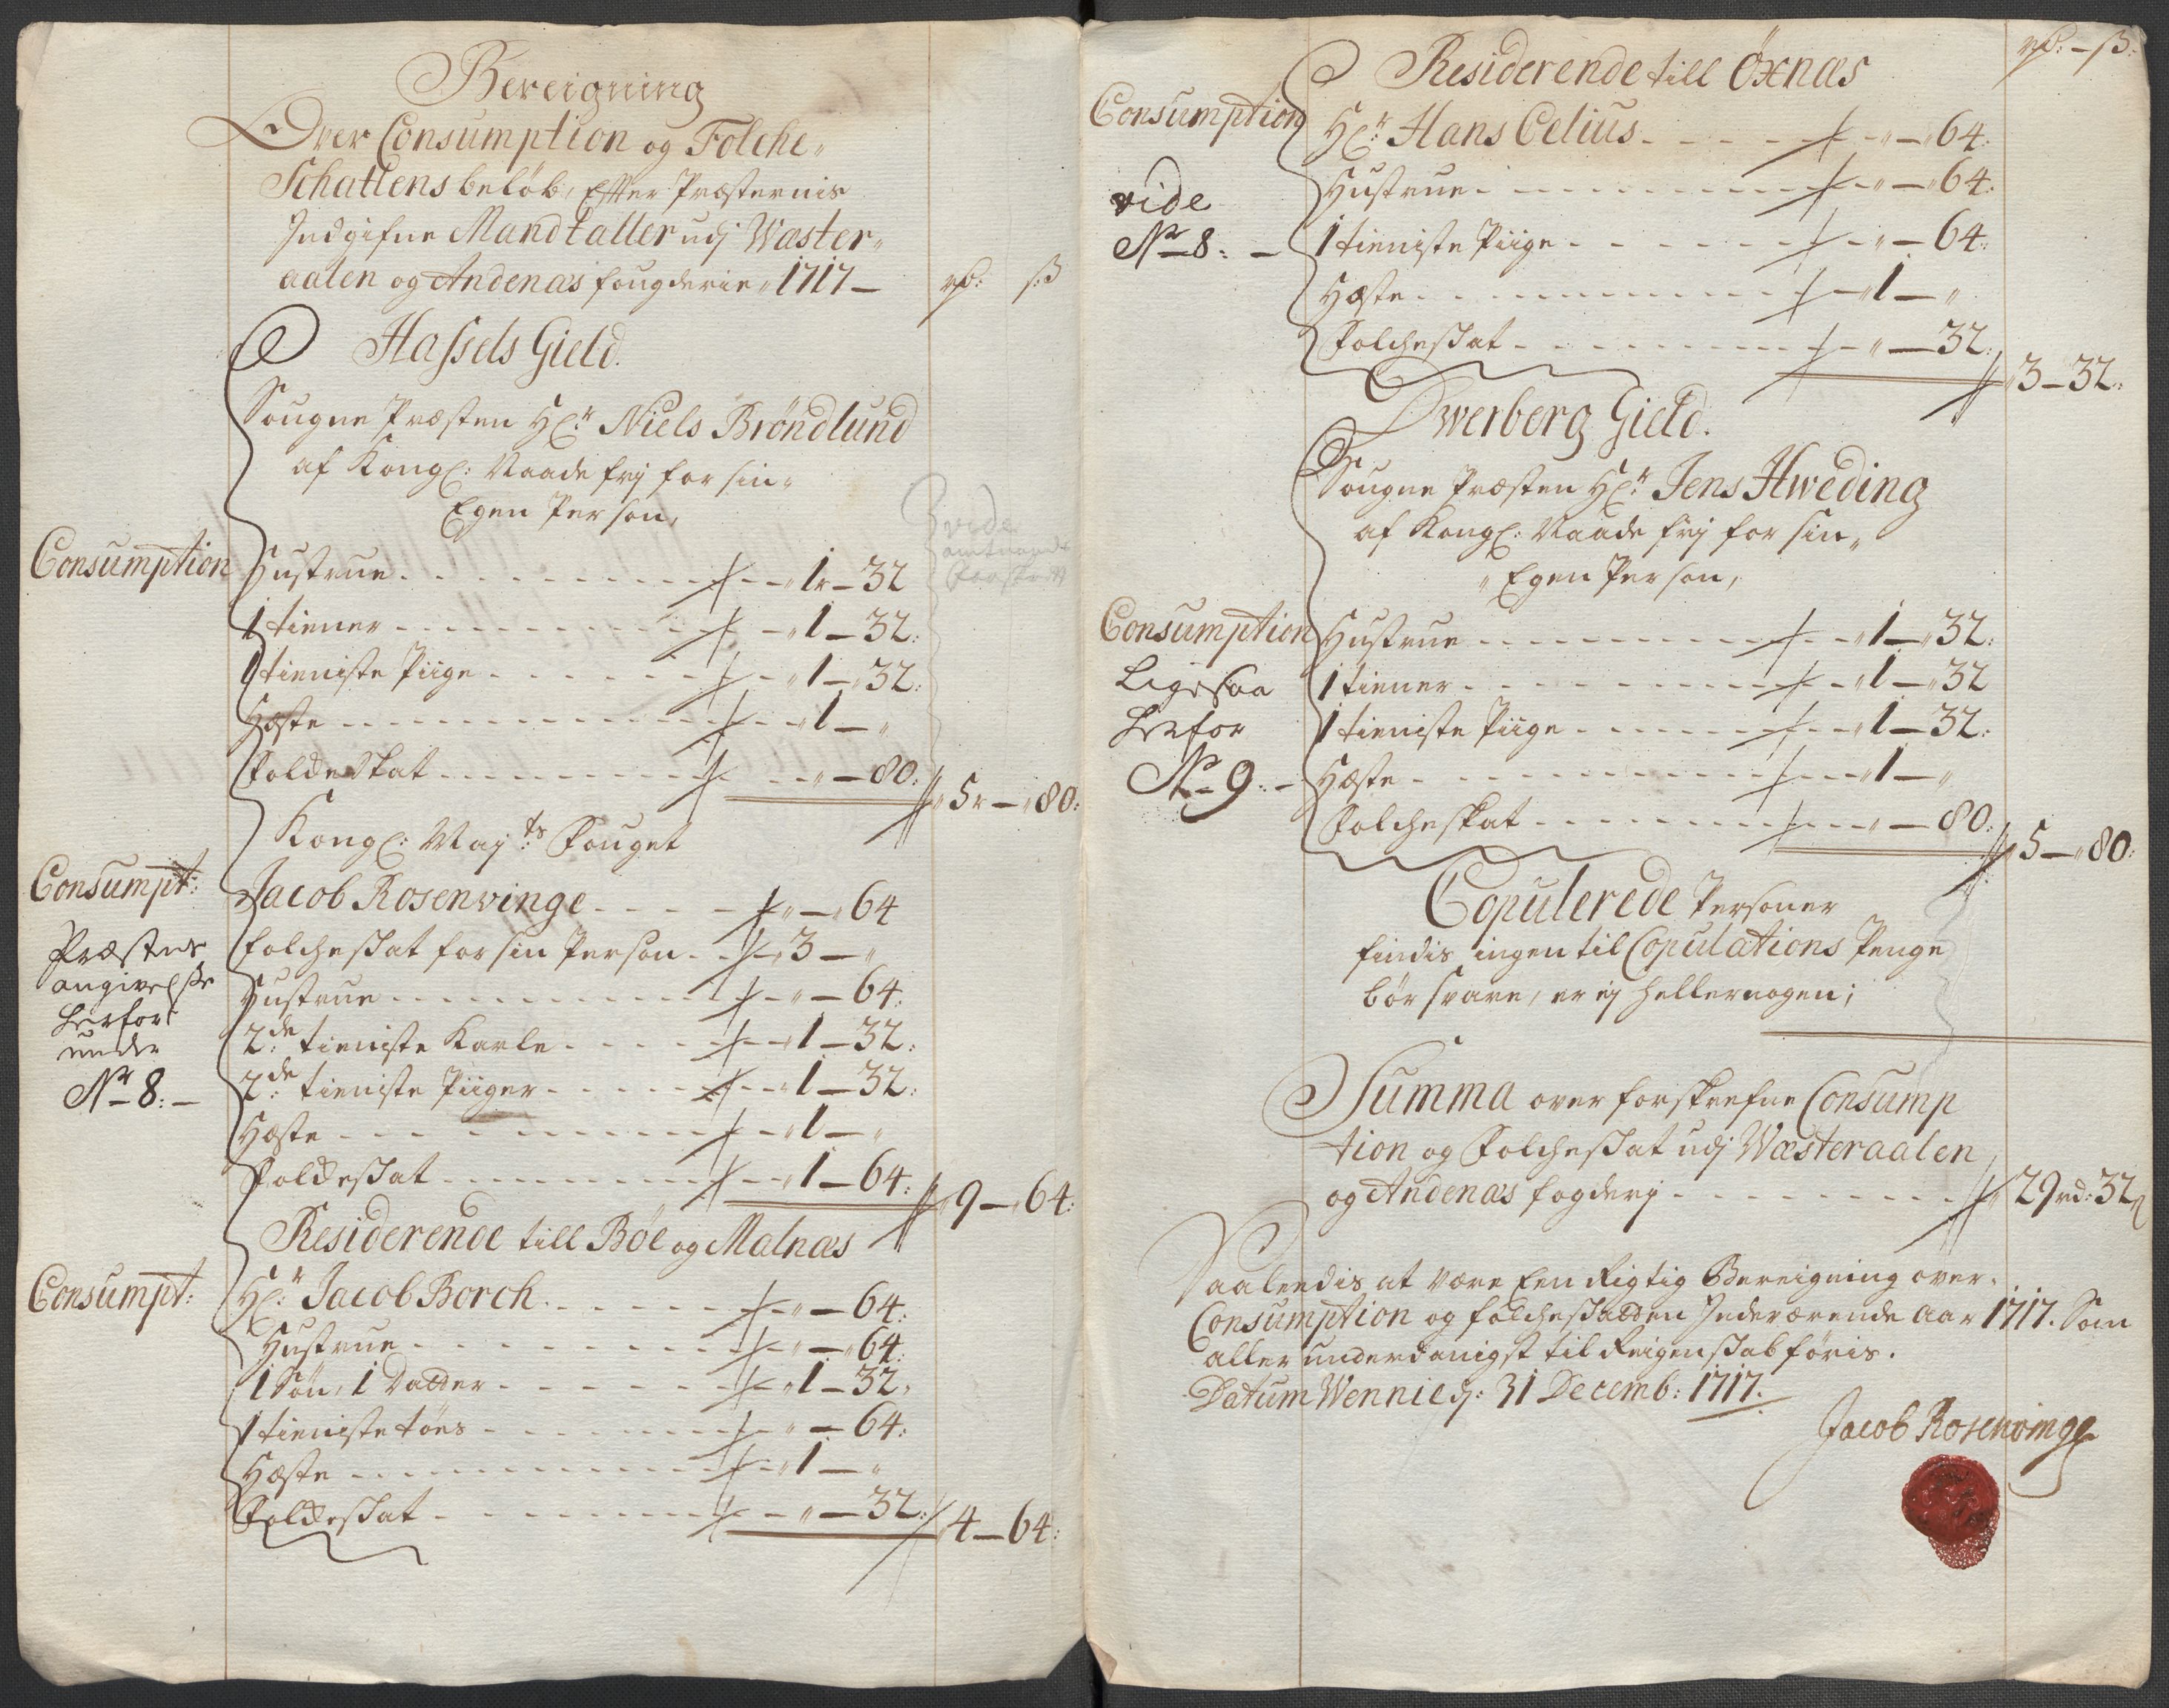 Bereigning
Over Consumption og Folche
Schattens beløb, Efter Præsternis
Indgifne Mandtaller udj Wæster,,
aalen og Andenæs fougderie,, 1717 – rd: s:ß
Hassels Gield.
Sougne Præsten Hr: Niels Brøndlund
af Kongl: Naade frj for sin,,
Egen Person,
vide
Consumption
Hustrue - - - 1r – 32
1 tiener - - - 1 – 32:
1 tieniste Piige - - - 1 – 32:
Hæste - - - 1 – „
Folcheskat - - - „ – 80:
5r – 80:
Kongl: Maj:ts Fouget
Consumpt:
Jacob Rosenvinge - - - „ – 64
Præstens
angivelsse
herfor
under
No 8: –
folcheskat for sin Person - - 3 – „
Hustrue - - - „ – 64:
2de: tieniste Karle - - - 1 – 32:
2de: tieniste Piiger - - - 1 – 32:
Hæste - - - 1 – „
Folcheskat - - - 1 – 64:
9 – 64:
Residerende till Bøe og Malnæs
Consumpt:
Hr: Jacob Borch - - - „ – 64:
Hustrue - - - „ – 64:
1 Søn, 1 Datter - - - 1 – 32,
1 tieniste tøes - - - „ – 64:
Hæste - - - 1 – „
Folcheskat - - - „ – 32:
4 – 64:
rd: – ß:
Residerende till Öxnæs
Consumption
vide
No 8: –
Hr: Hans Celius - - - „ – 64:
Hustrue - - - „ – 64:
1 tieniste Piige - - - „ – 64:
Hæste - - - 1 – „
Folcheskat - - - „ – 32:
3 – 32:
Dwerberg Gield.
Sougne Præsten Hr: Jens Hweding
af Kongl: Naade frj for sin,,
„ Egen Person,
Consumption
Ligesaa
herfor
No 9: –
Hustrue - - - 1 – 32:
1 tiener - - - 1 – 32
1 tieniste Piige - - - 1 – 32:
Hæste - - - 1 – „
Folcheskat - - - „ – 80:
5 – 80:
Copulerede Personer
findis ingen til Copulations Penge
bør svare, er ej heller nogen;
Summa over forskrefne Consump
tion og Folcheskat udj Wæsteraalen
og Andenæs fogderj - - - 29rd: 32
Saaledis at være Een Rigtig Bereigning over
Consumption og folcheskatten Indeværende Aar 1717. Som
aller underdanigst til Reigenskab føris.
Datum Wennie d: 31 Decemb: 1717.
Jacob Rosenvinge